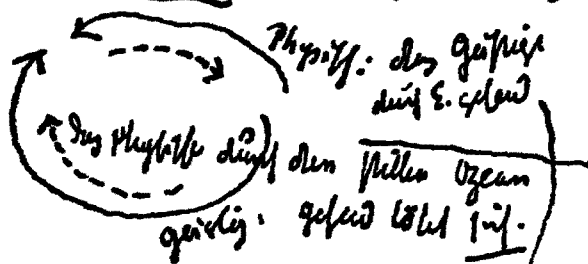 Physisch: das Geistige
durch E. gehend
Das Physische durch den stillen Ozean
geistig: gehend löset sich.